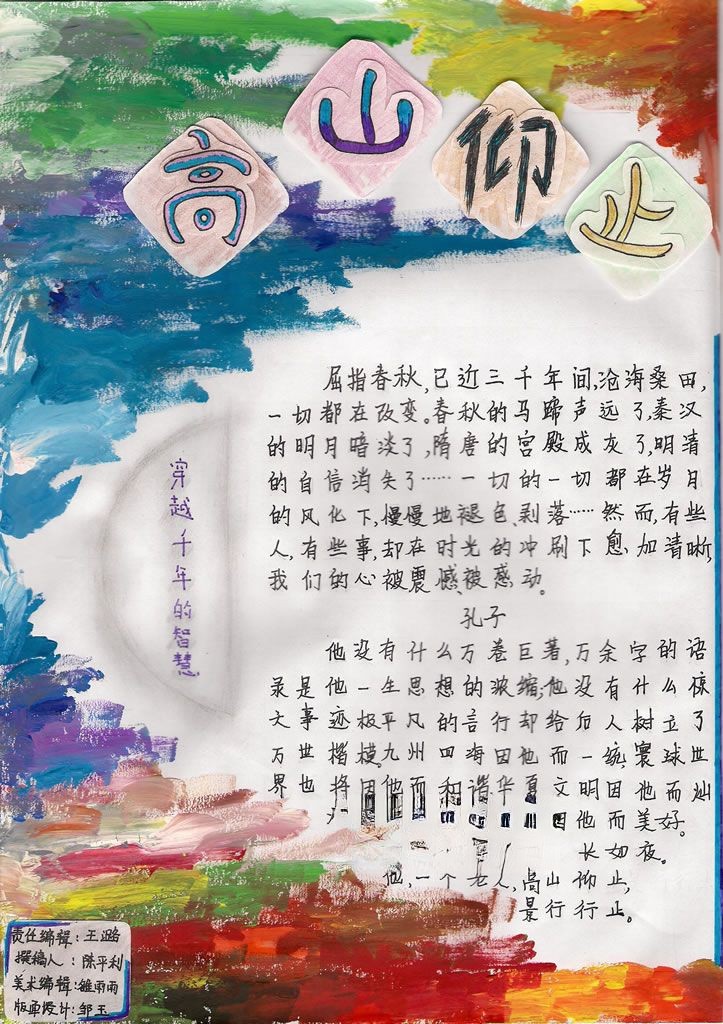 高山仰止
屈指春秋,已近三千年间,沧海桑田,
一切都在改变。春秋的马蹄声远了,秦汉
的明月暗淡了,隋唐的宫殿成灰了,明清
的自信消失了……一切的一切都在岁月
的风化下,慢慢地褪色、剥落……然而,有些
人,有些事,却在时光的冲刷下愈加清晰,
我们的心被震憾、被感动。
孔子
他没有什么万卷巨著,万余字的语
录是他一生思想的浓缩;他没有什么
大事迹极平凡的言行却给后人树立了
万世楷模。九州四海因他而一统,寰球世
界也将因他而和谐。华夏文明因他而灿
因他而美好。
长如夜。
他,一个老人,高山仰止,
景行行止。
穿越千年的智慧
责任编辑:王璐
撰稿人:陈平利
美术编辑:雨雨
版面设计:邹玉